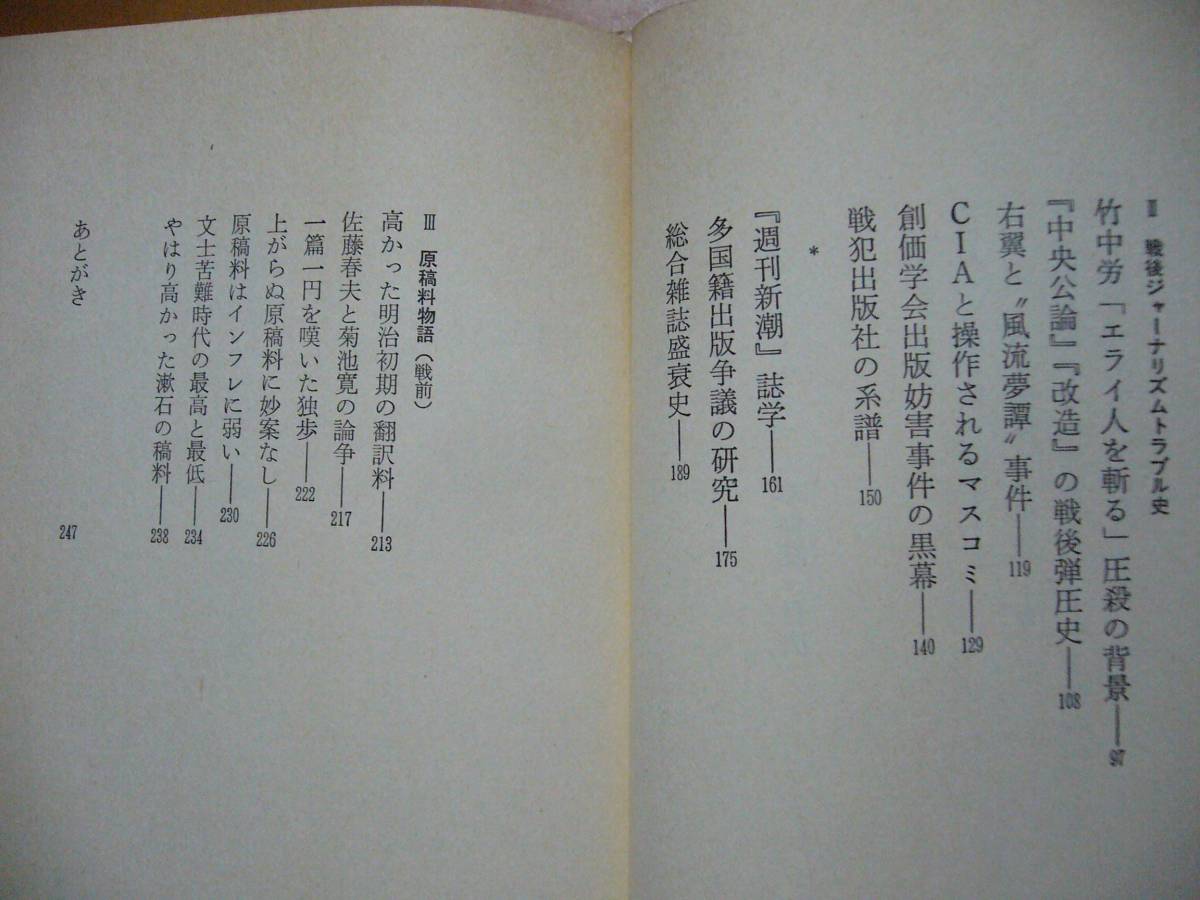 Ⅱ 戦後ジャーナリズムトラブル史
竹中労「エライ人を斬る」圧殺の背景――97
『中央公論』『改造』の戦後弾圧史――108
右翼と〝風流夢譚〟事件――119
CIAと操作されるマスコミ――129
創価学会出版妨害事件の黒幕――140
戦犯出版社の系譜――150
*
『週刊新潮』誌学――161
多国籍出版争議の研究――175
総合雑誌盛衰史――189
Ⅲ 原稿料物語(戦前)
高かった明治初期の翻訳料――213
佐藤春夫と菊池寛の論争――217
一篇一円を嘆いた独歩――222
上がらぬ原稿料に妙案なし――226
原稿料はインフレに弱い――230
文士苦難時代の最高と最低――234
やはり高かった漱石の稿料――238
あとがき 247